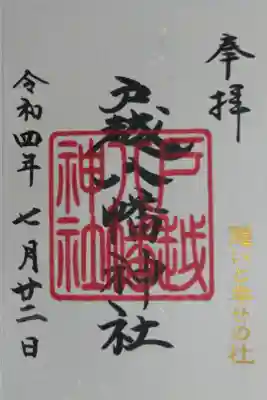 奉拝
戸越八幡神社
戸越
八幡
神社
令和四年 七月廿二日